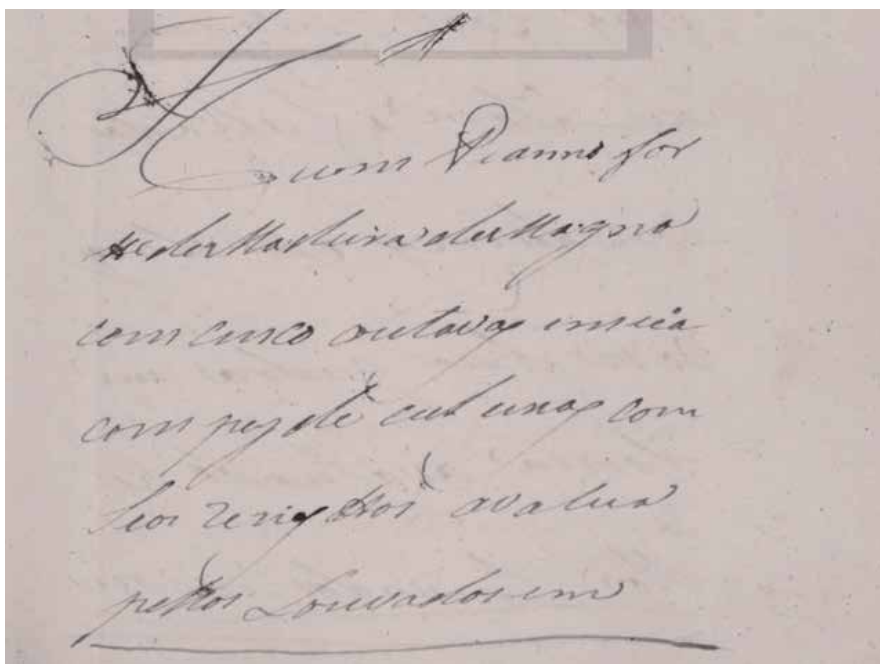 hum Pianno for
te de Madeira de Magno
com cinco outavas emeia
com pes de culunas com
seos rezistos avalua
pellos Louvados em